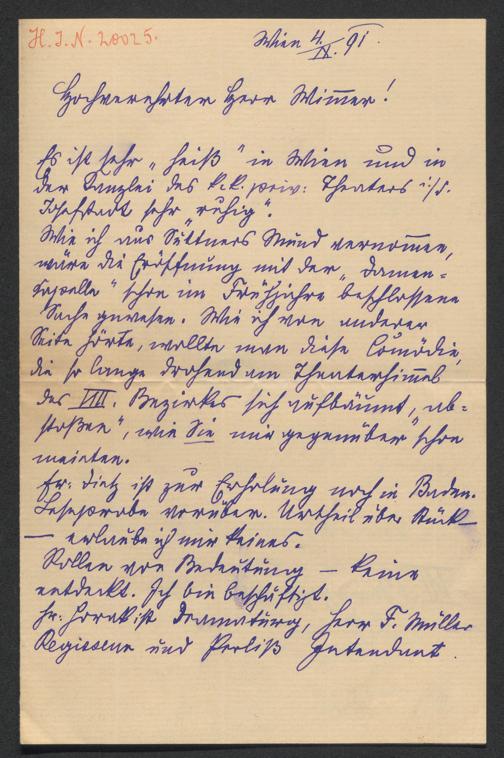 H. I. N. 20025.
Wien 4./IX. 91.
Hochverehrter Herr Wimmer!
Es ist sehr „heiß" in Wien und in
der Kanzlei des k. k. priv: Theaters i/d.
Josefstadt sehr „ruhig".
Wie ich aus Suttners Mund vernommen,
wäre die Eröffnung mit der „Damen=
kapelle" schon im Frühjahre beschlossene
Sache gewesen. Wie ich von anderer
Seite hörte, wollte man diese Comödie,
die so lange drohend am Theaterhimmel
des VIII. Bezirkes sich aufbäumt, „ab=
stoßen", wie Sie mir gegenüber schon
meinten.
Fr: Dietz ist zur Erholung noch in Baden.
Leseprobe vorüber. Urtheil über Stück —
— erlaube ich mir keines.
Rollen von Bedeutung — keine
entdeckt. Ich bin beschäftigt.
Hr: Horak ist Dramaturg, Herr F. Müller
Regisseur und Perliß Intendant.